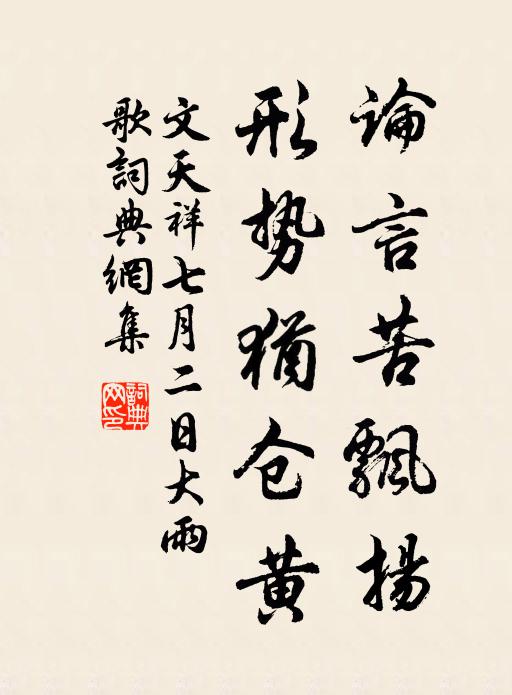 論言苦飄揚
形势猶仓黄
文天祥七月二日大雨
歌詞典網集
詞典
网印